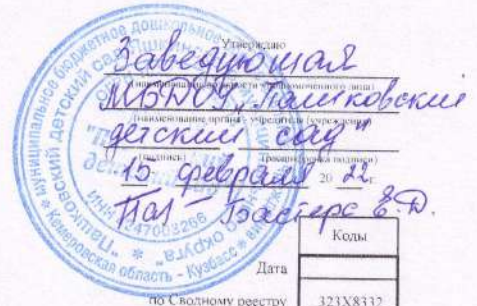 Утверждаю
Заведующая
(наименование должности уполномоченного лица)
МБДОУ "Пашковский
(наименование органа - учредителя (учреждения)
детский сад"
(подпись) (расшифровка подписи)
15 февраля 20 22 г.
Бастерс Е.Д.
Коды
Дата
по Сводному реестру 323X8332
муниципальное бюджетное дошкольное
"Пашковский детский сад
Кемеровская область - Кузбасс
округа